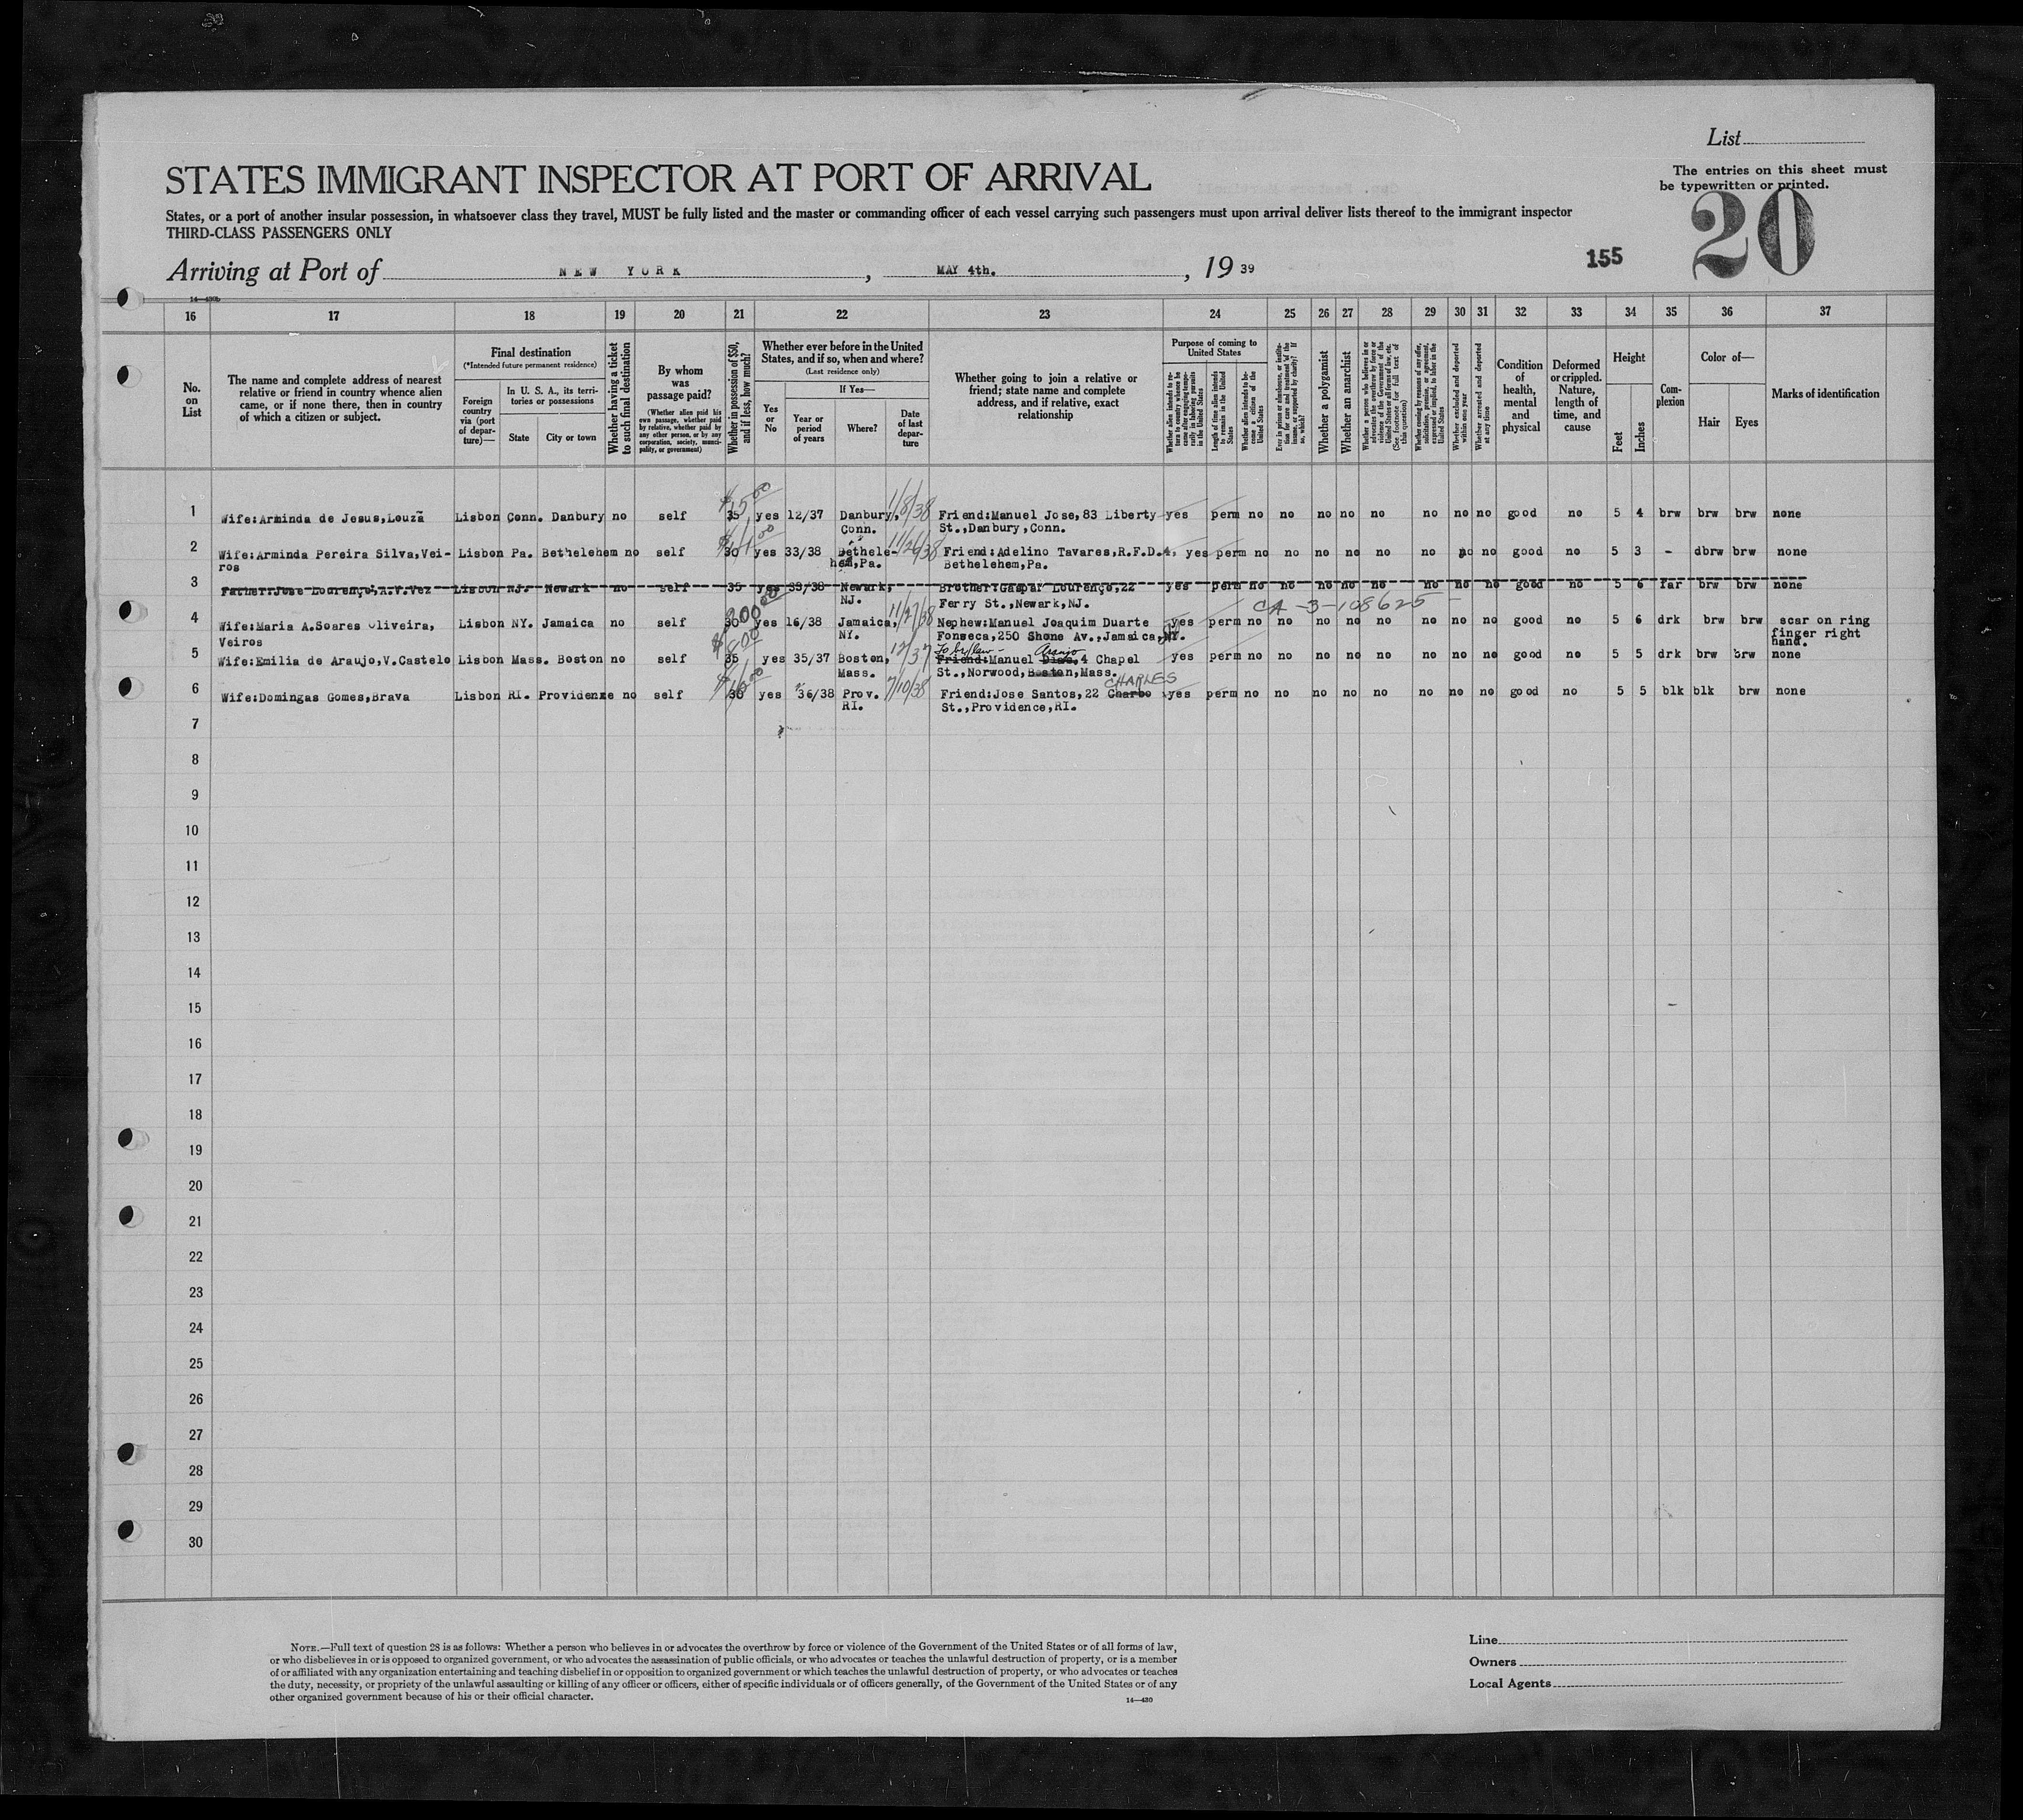 List
STATES IMMIGRANT INSPECTOR AT PORT OF ARRIVAL
The entries on this sheet must
be typewritten or printed.
States, or a port of another insular possession, in whatsoever class they travel, MUST be fully listed and the master or commanding officer of each vessel carrying such passengers must upon arrival deliver lists thereof to the immigrant inspector
THIRD-CLASS PASSENGERS ONLY
20
155
Arriving at Port of NEW YORK, MAY 4th., 19 39
14—430b
16 17 18 19 20 21 22 23 24 25 26 27 28 29 30 31 32 33 34 35 36 37
No. on List
The name and complete address of nearest relative or friend in country whence alien came, or if none there, then in country of which a citizen or subject.
Final destination
(*Intended future permanent residence)
Foreign country via (port of departure)—
In U. S. A., its territories or possessions
State
City or town
Whether having a ticket to such final destination
By whom was passage paid?
(Whether alien paid his own passage, whether paid by relative, whether paid by any other person, or by any corporation, society, municipality, or government)
Whether in possession of $50, and if less, how much?
Whether ever before in the United States, and if so, when and where?
(Last residence only)
Yes or No
If Yes—
Year or period of years
Where?
Date of last departure
Whether going to join a relative or friend; state name and complete address, and if relative, exact relationship
Purpose of coming to United States
Whether alien intends to return to country whence he came after engaging temporarily in laboring pursuits in the United States
Length of time alien intends to remain in the United States
Whether alien intends to become a citizen of the United States
Ever in prison or almshouse, or institution for care and treatment of the insane, or supported by charity? If so, which?
Whether a polygamist
Whether an anarchist
Whether a person who believes in or advocates the overthrow by force or violence of the Government of the United States or all forms of law, etc. (See footnote for full text of this question)
Whether coming by reasons of any offer, solicitation, promise, or agreement, expressed or implied, to labor in the United States
Whether excluded and deported within one year
Whether arrested and deported at any time
Condition of health, mental and physical
Deformed or crippled. Nature, length of time, and cause
Height
Feet
Inches
Complexion
Color of—
Hair
Eyes
Marks of identification
1 Wife:Arminda de Jesus,Louzã Lisbon Conn. Danbury no self 35 $15 00 yes 12/37 Danbury, 11/8/38 Friend:Manuel Jose,83 Liberty yes perm no no no no no no no no good no 5 4 brw brw brw none
Conn. St.,Danbury,Conn.
2 Wife:Arminda Pereira Silva,Vei- Lisbon Pa. Bethelehem no self 30 yes 33/38 Bethele- 11/26/38 Friend:Adelino Tavares,R.F.D.4, yes perm no no no no no no no no good no 5 3 - dbrw brw none
ros hem,Pa. Bethelehem,Pa.
3 Father:Jose Lourenço,A.V.Vez Lisbon NJ. Newark no self 35 yes 35/38 Newark, Brother:Gaspar Lourenço,22 yes perm no no no no no no no no good no 5 6 far brw brw none
NJ. Ferry St.,Newark,NJ. CA -3-108625-
4 Wife:Maria A.Soares Oliveira, Lisbon NY. Jamaica no self 30 yes 16/38 Jamaica, 11/27/38 Nephew:Manuel Joaquim Duarte yes perm no no no no no no no no good no 5 6 drk brw brw scar on ring
Veiros NY. Fonseca,250 Shone Av.,Jamaica,NY. finger right
hand.
5 Wife:Emilia de Araujo,V.Castelo Lisbon Mass. Boston no self 35 $800 yes 35/37 Boston, 12/37 Friend:Manuel Dias, Araujo 4 Chapel yes perm no no no no no no no no good no 5 5 drk brw brw none
Mass. St.,Norwood,Boston,Mass.
6 Wife:Domingas Gomes,Brava Lisbon RI. Providenze no self 30 yes 36/38 Prov. 7/10/38 Friend:Jose Santos,22 Charbo CHARLES yes perm no no no no no no no no good no 5 5 blk blk brw none
RI. St.,Providence,RI.
7
8
9
10
11
12
13
14
15
16
17
18
19
20
21
22
23
24
25
26
27
28
29
30
NOTE.—Full text of question 28 is as follows: Whether a person who believes in or advocates the overthrow by force or violence of the Government of the United States or of all forms of law,
or who disbelieves in or is opposed to organized government, or who advocates the assassination of public officials, or who advocates or teaches the unlawful destruction of property, or is a member
of or affiliated with any organization entertaining and teaching disbelief in or opposition to organized government or which teaches the unlawful destruction of property, or who advocates or teaches
the duty, necessity, or propriety of the unlawful assaulting or killing of any officer or officers, either of specific individuals or of officers generally, of the Government of the United States or of any
other organized government because of his or their official character.
14—430
Line
Owners
Local Agents